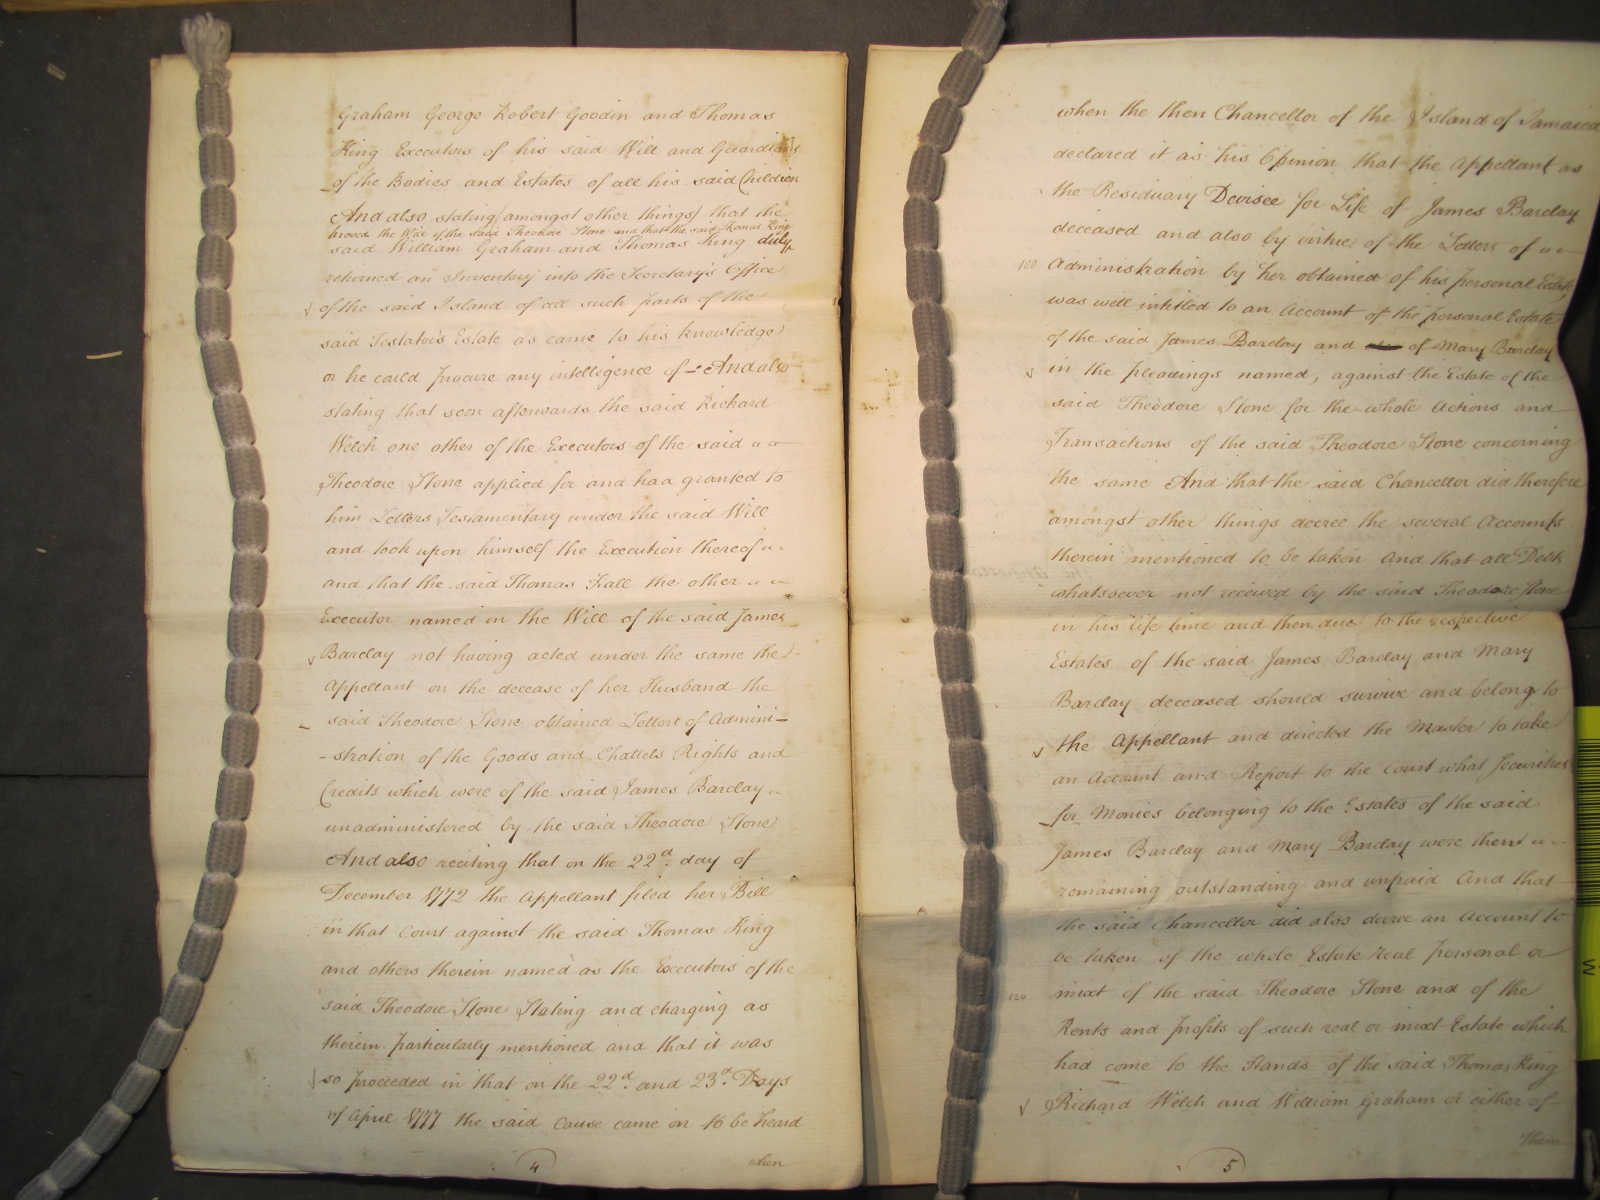 Graham George Robert Goodin and Thomas
King Executors of his said Will and Guardians
of the Bodies and Estates of all his said Children
And also stating (amongst other things) that the
proved the Will of the said Theodore Stone and that the said Thomas King
said William Graham and Thomas King duly
returned an Inventory into the Secretary's Office
of the said Island of all such parts of the
said Testator's Estate as came to his knowledge
or he could procure any intelligence of - And also
stating that soon afterwards the said Richard
Welch one other of the Executors of the said
Theodore Stone applied for and had granted to
him Letters Testamentary under the said Will
and took upon himself the Execution thereof
and that the said Thomas Hall the other
Executor named in the Will of the said James
Barclay not having acted under the same the
Appellant on the decease of her Husband the
said Theodore Stone obtained Letters of Admini-
-stration of the Goods and Chattels Rights and
Credits which were of the said James Barclay
unadministered by the said Theodore Stone
And also reciting that on the 22d. day of
December 1772 the Appellant filed her Bill
in that Court against the said Thomas King
and others therein named as the Executors of the
said Theodore Stone Stating and charging as
therein particularly mentioned and that it was
so proceeded in that on the 22d. and 23d. Days
of April 1777 the said Cause came on to be heard
when
4
when the then Chancellor of the Island of Jamaica
declared it as his Opinion that the Appellant as
the Residuary Devisee for Life of James Barclay
deceased and also by virtue of the Letters of
100 Administration by her obtained of his personal Estate
was well intitled to an Account of the personal Estate
of the said James Barclay and of Mary Barclay
in the pleadings named, against the Estate of the
said Theodore Stone for the whole Actions and
Transactions of the said Theodore Stone concerning
the same And that the said Chancellor did therefore
amongst other things decree the several Accounts
therein mentioned to be taken And that all Debts
whatsoever not received by the said Theodore Stone
in his life time and then due to the respective
Estates of the said James Barclay and Mary
Barclay deceased should survive and belong to
the Appellant and directed the Master to take
an Account and Report to the Court what Securities
for Monies belonging to the Estates of the said
James Barclay and Mary Barclay were then
remaining outstanding and unpaid And that
the said Chancellor did also decree an Account to
be taken of the whole Estate real personal or
120 mixt of the said Theodore Stone and of the
Rents and profits of such real or mixt Estate which
had come to the Hands of the said Thomas King
Richard Welch and William Graham or either of
them
5